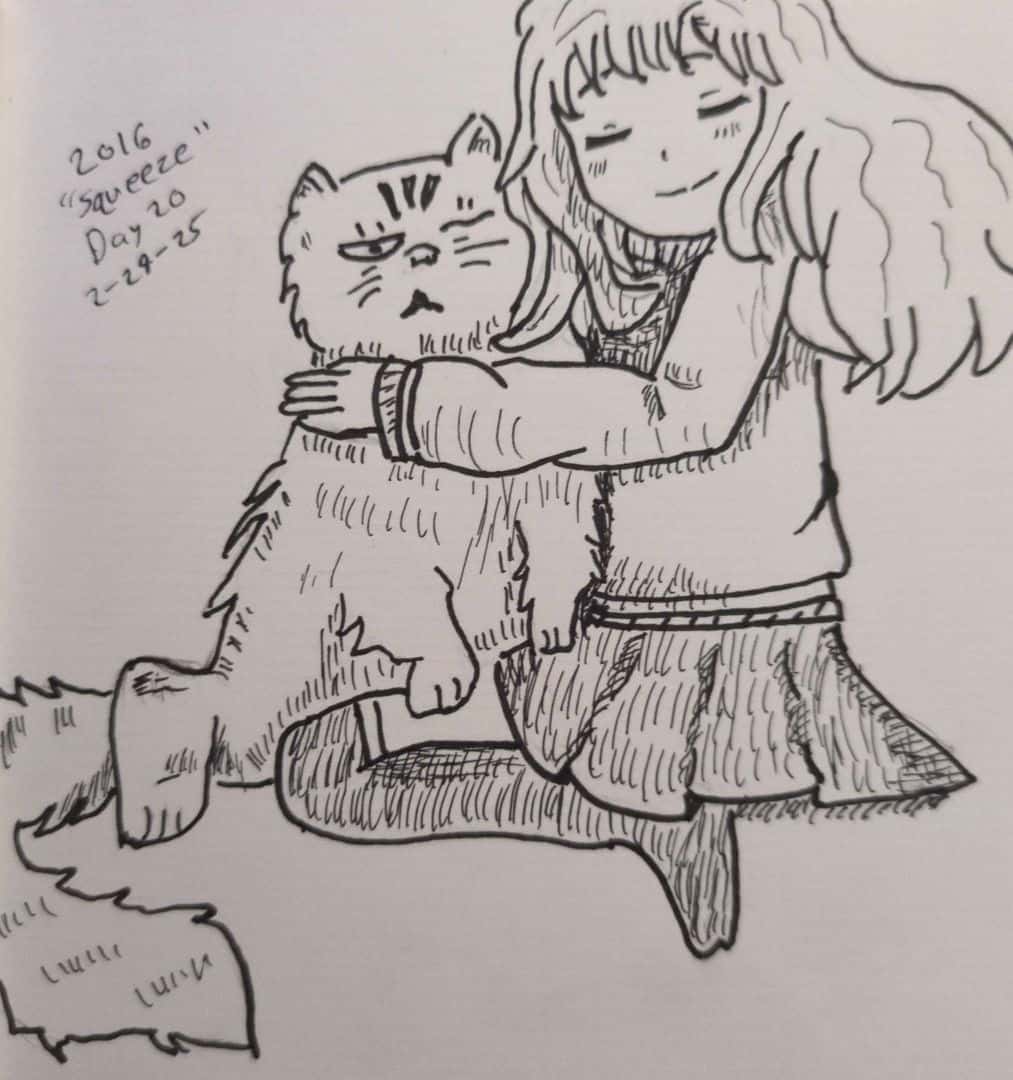 2016
"Squeeze"
Day 20
2-24-25